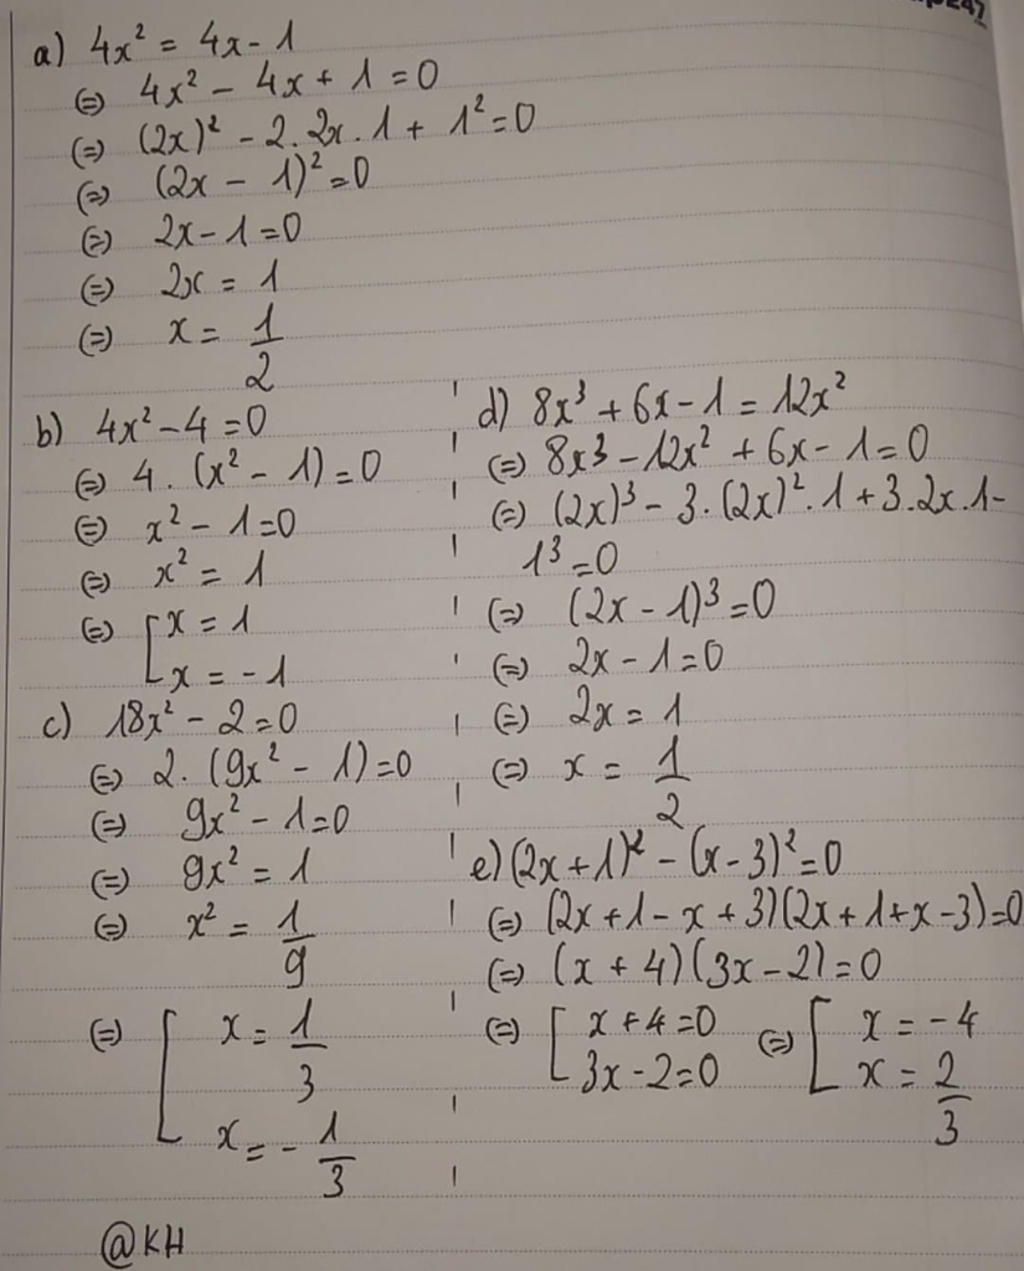 a) 4x² = 4x - 1
(=) 4x² - 4x + 1 = 0
(=) (2x)² - 2. 2x. 1 + 1² = 0
(=) (2x - 1)² = 0
(=) 2x - 1 = 0
(=) 2x = 1
(=) x = 1/2
b) 4x² - 4 = 0
(=) 4. (x² - 1) = 0
(=) x² - 1 = 0
(=) x² = 1
(=) [x = 1
x = -1
c) 18x² - 2 = 0
(=) 2. (9x² - 1) = 0
(=) 9x² - 1 = 0
(=) 9x² = 1
(=) x² = 1/9
(=) [ x = 1/3
x = - 1/3
d) 8x³ + 6x - 1 = 12x²
(=) 8x³ - 12x² + 6x - 1 = 0
(=) (2x)³ - 3. (2x)². 1 + 3. 2x. 1 -
1³ = 0
(=) (2x - 1)³ = 0
(=) 2x - 1 = 0
(=) 2x = 1
(=) x = 1/2
e) (2x + 1)² - (x - 3)² = 0
(=) (2x + 1 - x + 3)(2x + 1 + x - 3) = 0
(=) (x + 4)(3x - 2) = 0
(=) [ x + 4 = 0 (=) [ x = -4
3x - 2 = 0 x = 2/3
@KH